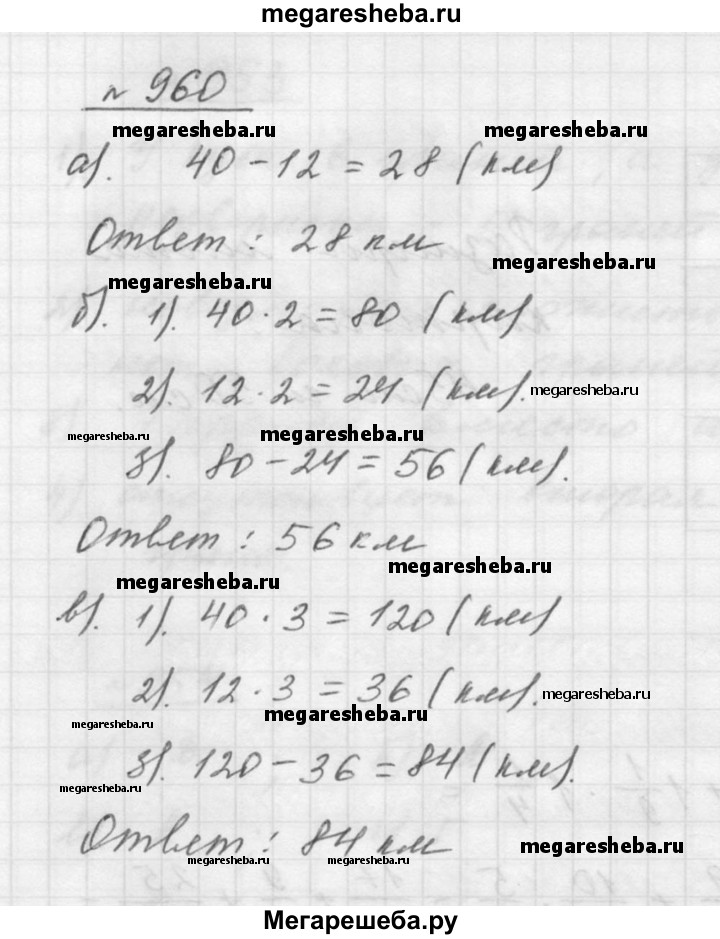 megaresheba.ru
№ 960
megaresheba.ru megaresheba.ru
а). 40 - 12 = 28 (км)
Ответ : 28 км
megaresheba.ru
megaresheba.ru
б). 1). 40 · 2 = 80 (км)
2). 12 · 2 = 24 (км).
megaresheba.ru
megaresheba.ru megaresheba.ru
3). 80 - 24 = 56 (км).
Ответ : 56 км
megaresheba.ru
megaresheba.ru
в). 1). 40 · 3 = 120 (км)
2). 12 · 3 = 36 (км).
megaresheba.ru
megaresheba.ru megaresheba.ru
3). 120 - 36 = 84 (км).
megaresheba.ru
Ответ : 84 км
megaresheba.ru
megaresheba.ru megaresheba.ru
Мегарешеба.ру